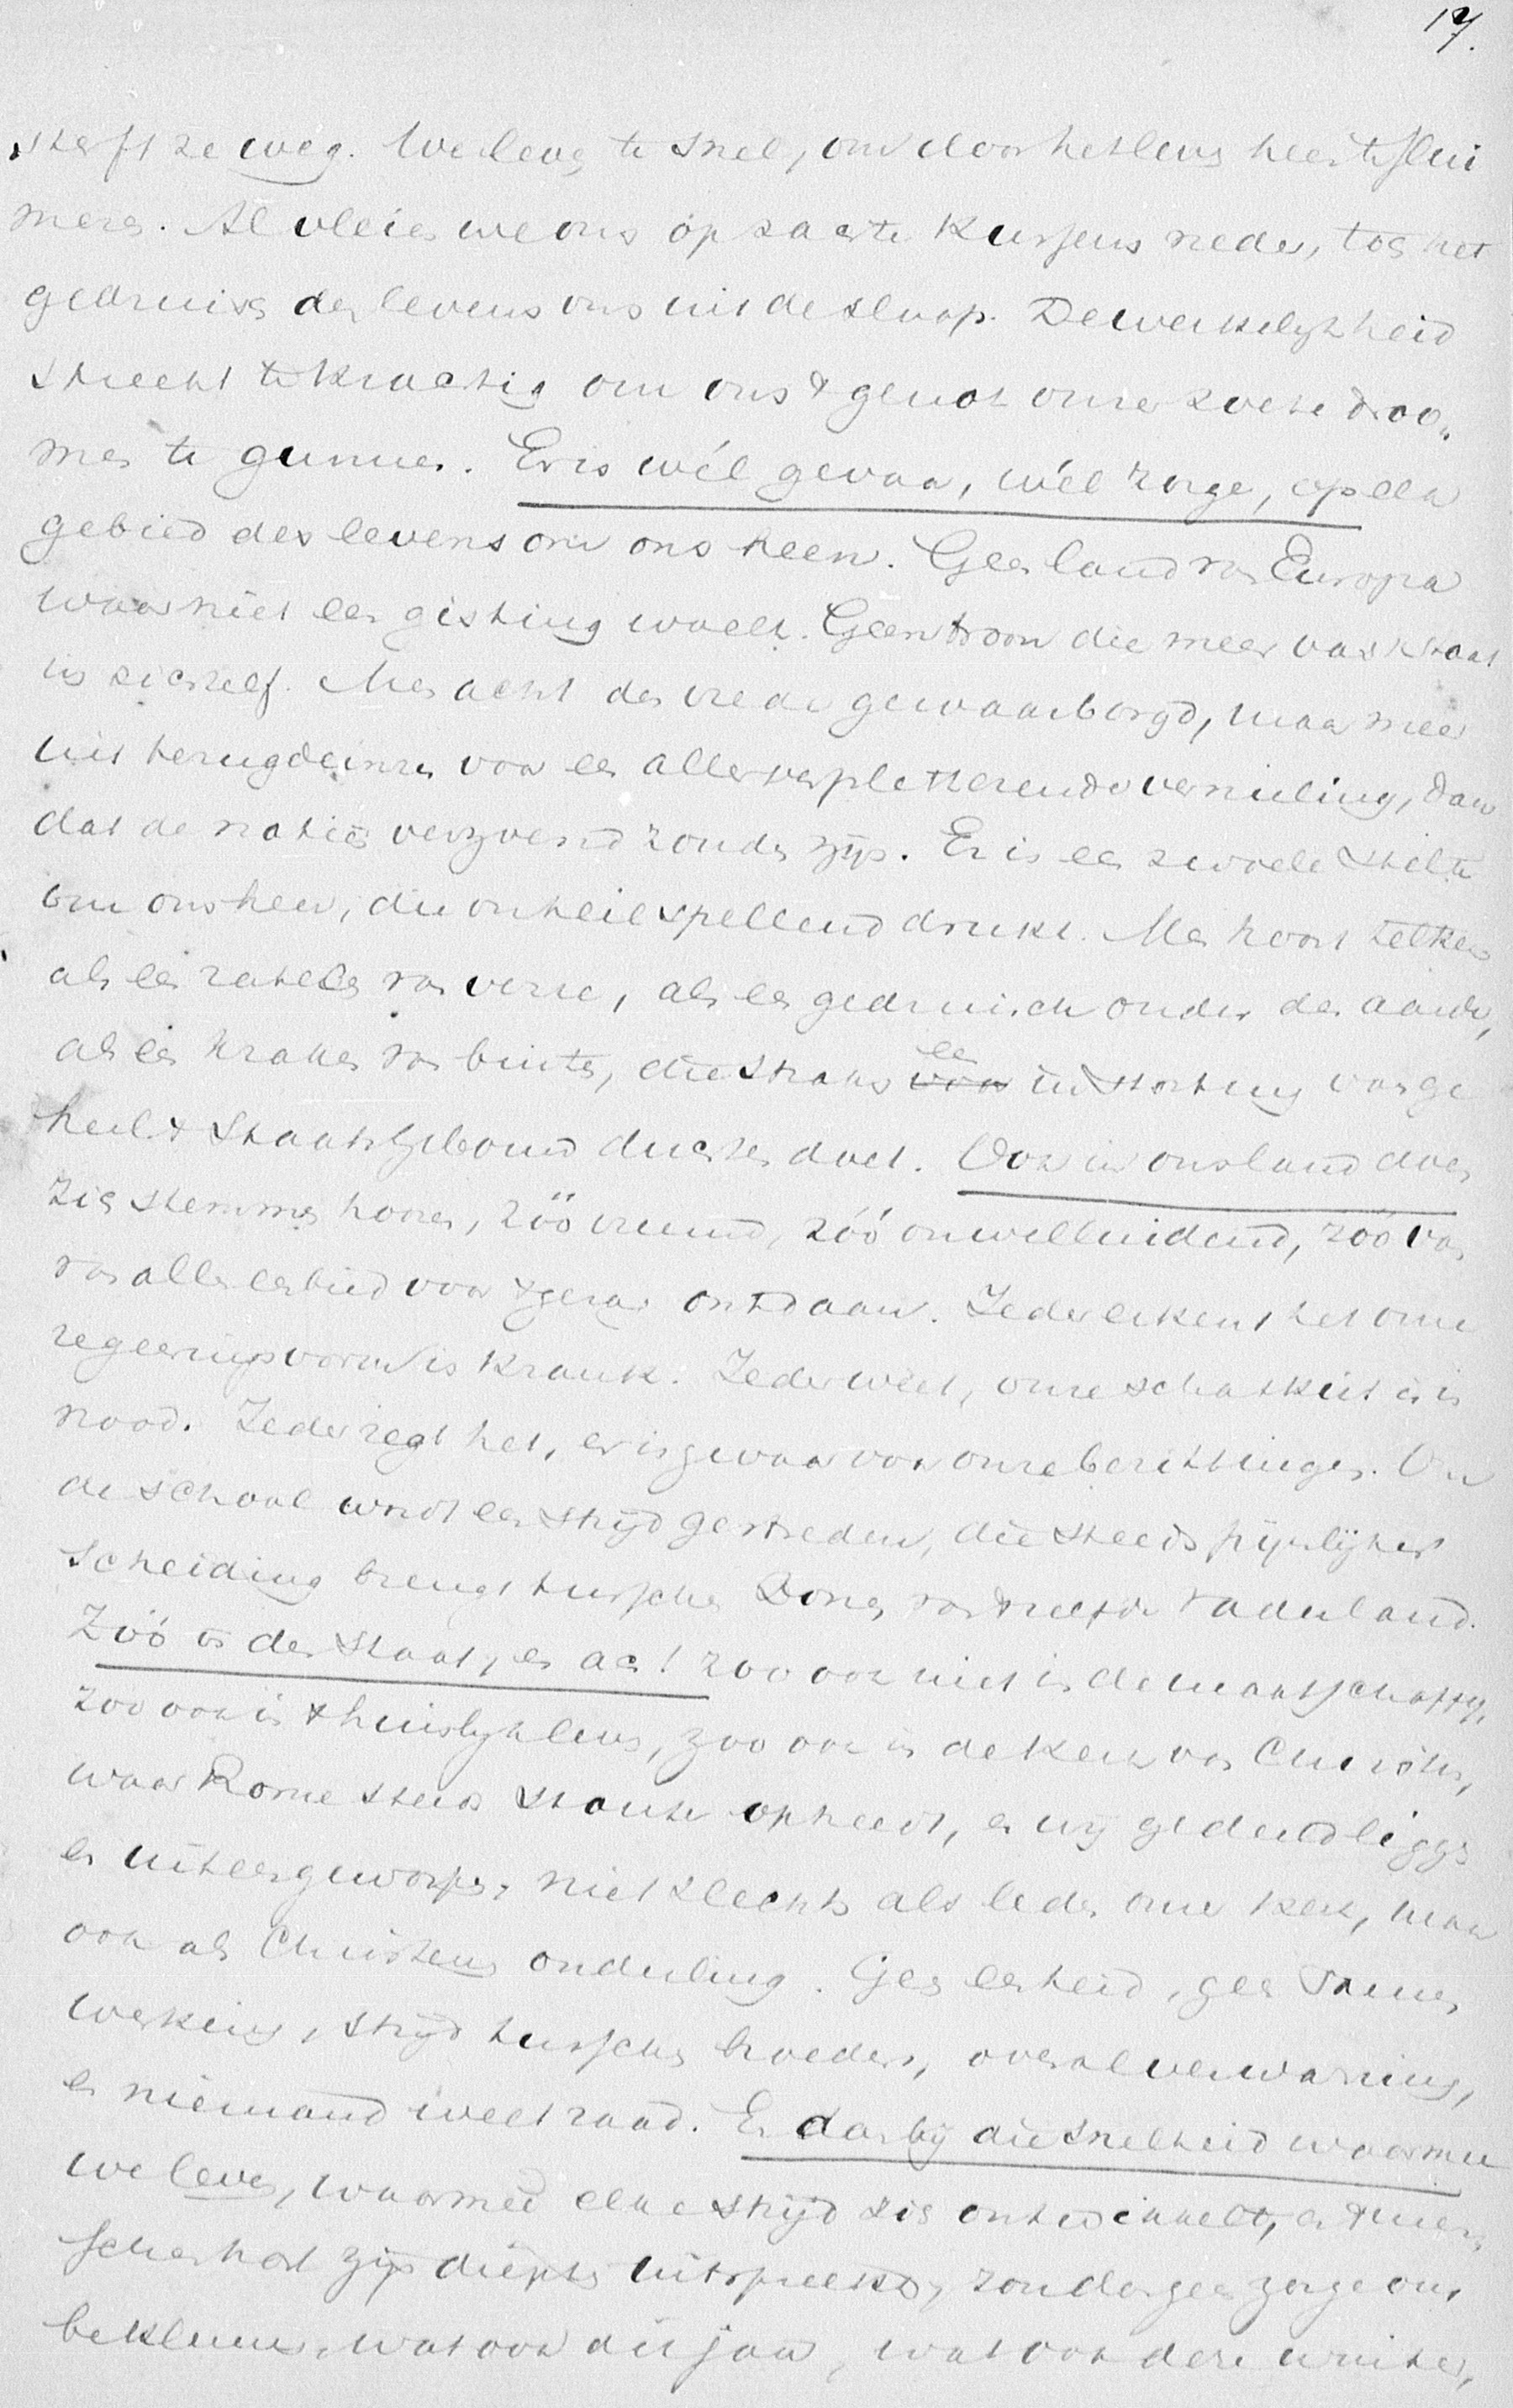 17.
sterft ze weg. We leven te snel, om door het leven heen te slui
meren. Al vleien we ons op zachte kussens neder, toch het
gedruisch des levens ons uit de slaap. De werkelykheid
spreekt te krachtig om ons 't genot onzer zoete droo„
men te gunnen. Er is wél gevaar, wél zorge, op elk
gebied des levens om ons heen. Geen land van Europa
waar niet een gisting woelt. Geen troon die meer vast staat
in zichzelf. Men acht den vrede gewaarborgd, maar meer
uit terugdeinzen voor een allesverpletterende vernieling, dan
dat de natiën verzoend zouden zijn. Er is een zwoele stilte
om ons heen, die onheilspellend drukt. Men hoort telkens
als een ratelen van verre, als een gedruisch onder de aarde,
als een kraken van binten, die straks een instorting van ge
heel 't Staatsgebouw duchten doet. Ook in ons land doen
zich stemmen hooren, zóó vreemd, zóó onwelluidend, zóó van
van alle eerbied voor 't gezag ontdaan. Ieder erkent het onze
regeeringsvorm is krank. Ieder weet, onze schatkist is in
nood. Ieder zegt het, er is gevaar voor onze bezittingen. Om
de school wordt een strijd gestreden, die steeds pijnlijker
scheiding brengt tusschen zonen van 't zelfde vaderland.
Zóó is de Staat, en ach! zoo ook niet in de maatschappy,
zoo ook in 't huislyk leven, zoo ook in de Kerk van Christus,
waar Rome steeds stouter optreedt, en wij gedeeld liggen
en uiteengeworpen, niet slechts als leden onzer kerk, maar
ook als Christenen onderling. Geen eenheid, geen samen
werking, strijd tusschen broeders, overal verwarring,
en niemand weet raad. En daarbij die snelheid waarmee
we leven, waarmeê elke strijd zich ontwikkelt, en 't men„
schenhart zijn diepten uitspreekt, zou dan geen zorge ons
beklemmen, wat ook dit jaar, wat ook deze winter,